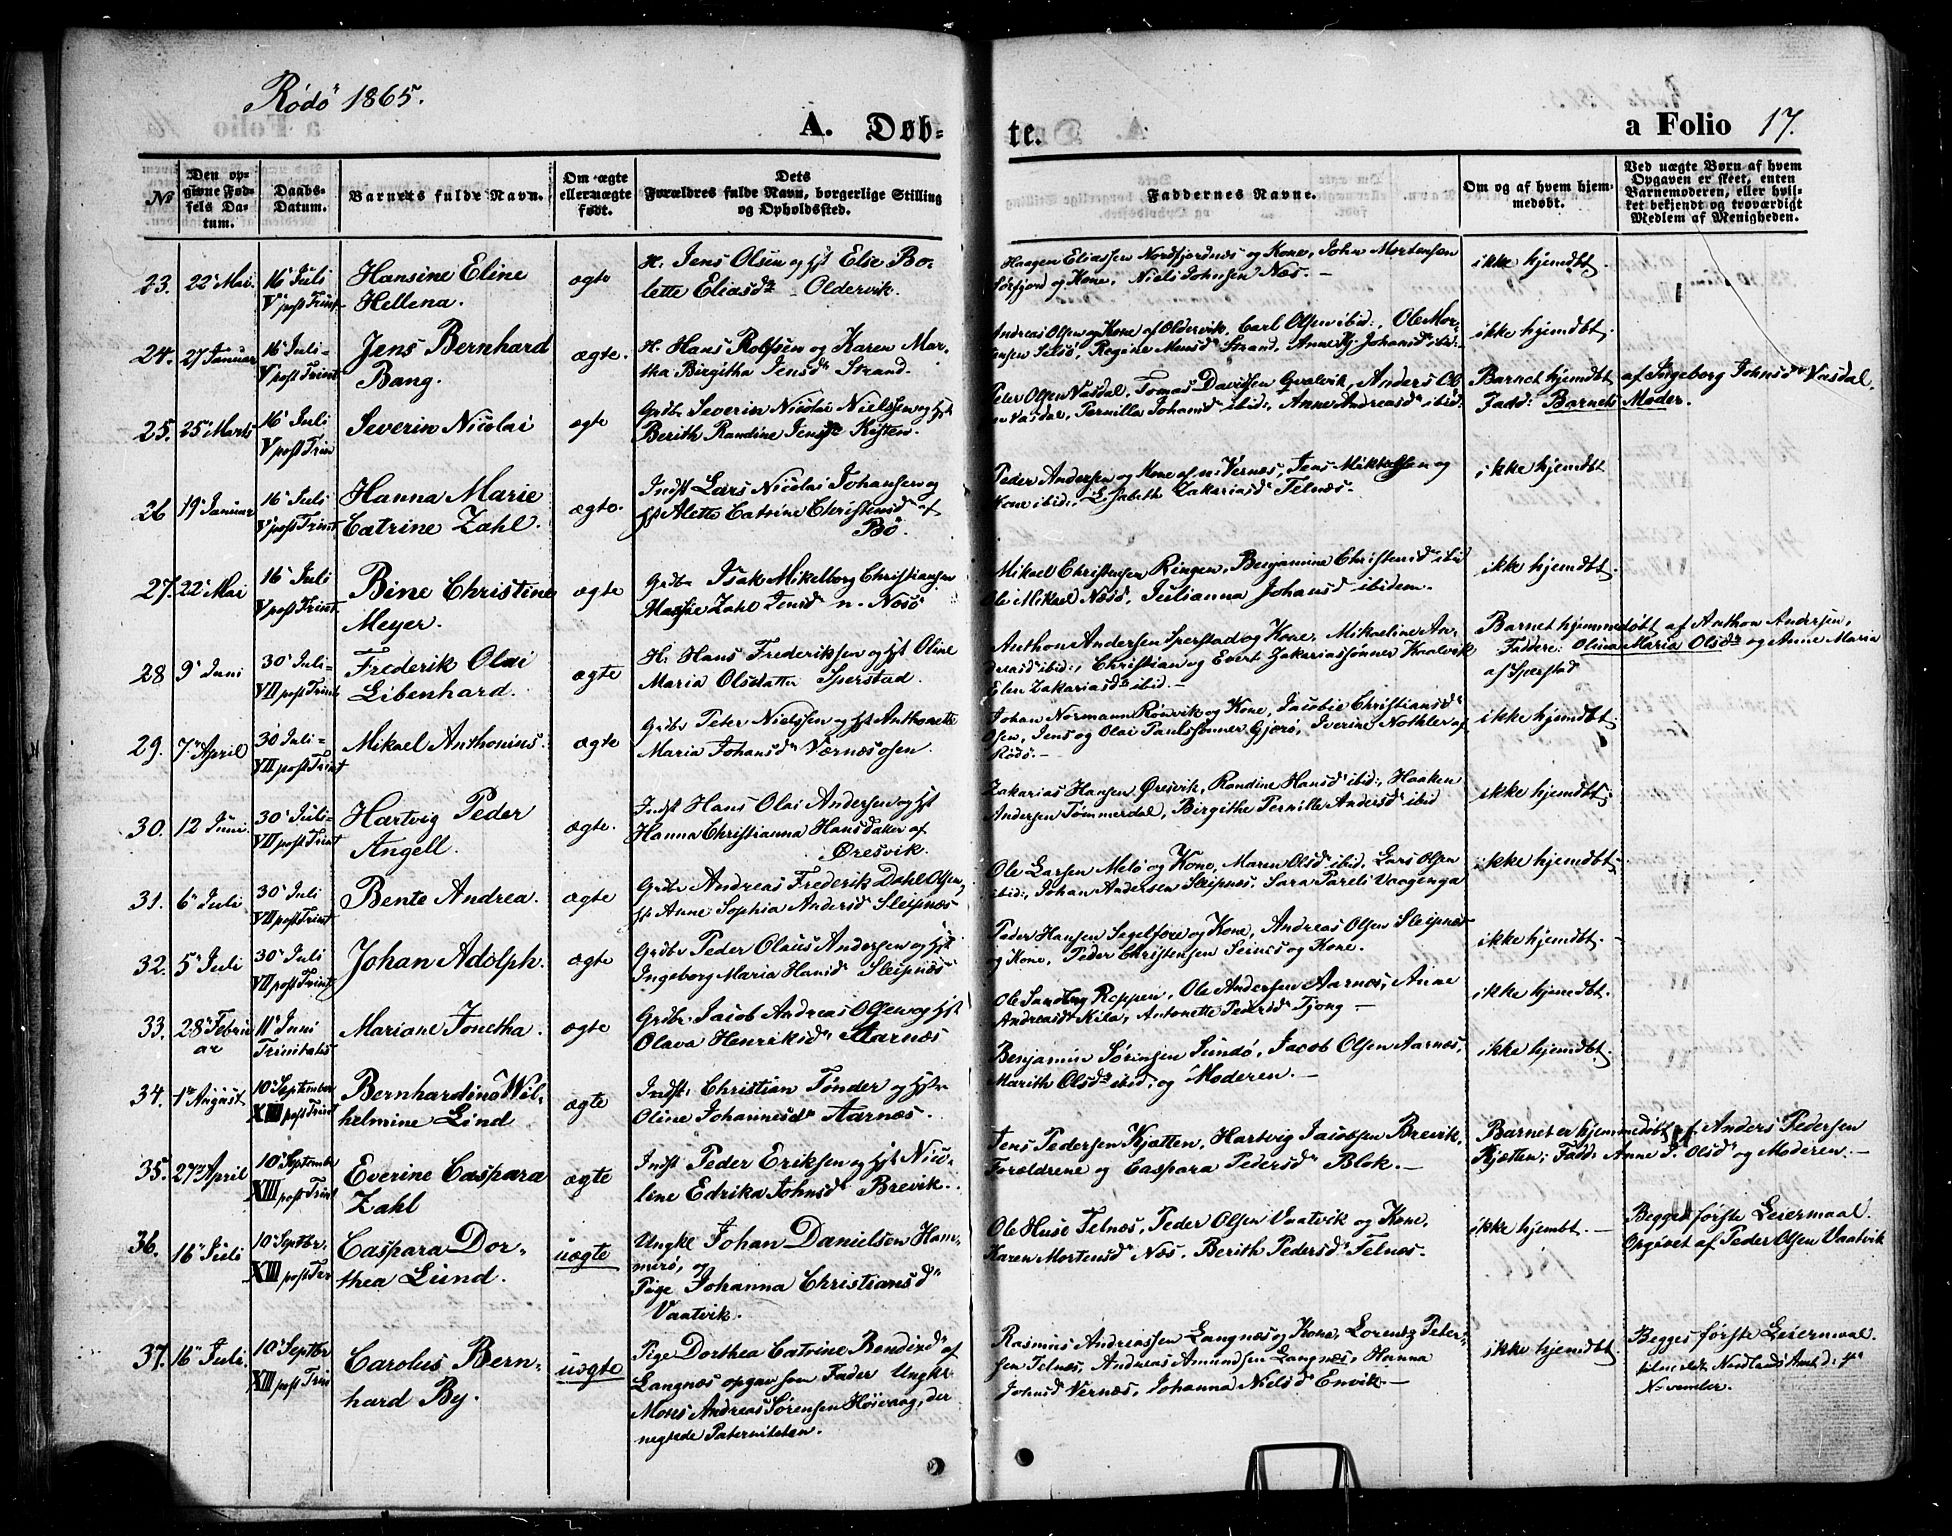 Rödö 1865.
A. Døb-
te.
a Folio 17.
№
Den op-
givne Fød-
sels Da-
tum.
Daabs-
Datum.
Barnets fulde Navn.
Om ægte
eller uægte
født.
Dets
Forældres fulde Navn, borgerlige Stilling
og Opholdssted.
Faddernes Navne.
Om og af hvem hjem-
medøbt.
Ved uægte Børn af hvem
Opgaven er skeet, enten
Barnemoderen, eller hvil-
ket bekjendt og troværdigt
Medlem af Menigheden.
23. 22 Mai 16 Juli
V post Trint
Hansine Eline
Hellena.
ægte
H. Jens Olsen og Hst Else Bo-
lette Eliasdr Oldervik.
Haagen Eliassen Nordfjordnæs og Kone, John Mortensen
Sörfjord og Kone, Niels Johnsen Næs.
ikke hjemdøbt.
24. 27 Januar 16 Juli
V post Trint
Jens Bernhard
Bang.
ægte.
H. Hans Rolfsen og Karen Mar-
tha Birgitha Jensdr Strand.
Andreas Olsen og Kone af Oldervik, Carl Olsen ibid:, Ole Mor-
tensen Selsö, Regine Monsdr Strand, Johansdr ibid:
ikke hjemdøbt.
25. 25 Marts 16 Juli
V post Trin
Severin Nicolai
ægte
Grdbr Severin Nicolai Nielssen og Hst
Berith Randine Jensdr
Peter Olsen Vasdal, Tomas Davidsen Gvalvik, Anders Ol-
sen Vasdal, Pernilla Johansdr ibid:, Anne Andreasdr ibid:
Barnet hjemdøbt af Ingeborg Johnsdr Vasdal.
Fadd: Barnets Moder.
26 19 Januar 16 Juli
V post Trint
Hanna Marie
Catrine Zahl.
ægte.
Indst Lars Nicolai Johansen og
Hst Alette Catrine Christensdr af
Bö.
Peder Andersen og Kone af n. Værnes, Jens Mikkelsen og
Kone ibid:, Elisabeth Zakariasdr Telnæs.
ikke hjemdøbt
27. 22 Mai 16 Juli
V post Trint.
Bine Christine
Meyer.
ægte
Grdbr Isak Mikelborg Christiansen
Zahl Jensdr n. Næsö
Mikael Christensen Ringen, Benjamine Christensdr ibid
Ole Mikael Næsö, Julianna Johansdr ibidem.
ikke hjemdøbt.
28 9 Juni 30 Juli
VII post Trint
Frederik Olai
Libenhard.
ægte
H. Hans Frederiksen og Hst Oline
Maria Olsdatter Sperstad.
Anthon Andersen Sperstad og Kone, Mikaeline An-
dreasdr ibid:, Christian og Evert Zakariassönner Kaalvik
Elen Zakariasdr ibid.
Barnet hjemmedøbt af Anthon Andersen,
Faddere: Olina Maria Olsdr og Anne Maria
af Sperstad
29. 7 April 30 Juli
VII post Trint
Mikael Anthonius.
ægte
Grdbr Peter Nielssen og Hst Anthonette
Maria Johansdr Værnæsosen.
Johan Normann Rönvik og Kone, Jacobie Christiansdr
Osen, Jens og Olai Paulssönner Gjærö, Iverine Nothler af
Rödö.
ikke hjemdøbt
30. 12 Juni. 30 Juli
VII post Trint
Hartvig Peder
Angell.
ægte.
Indst Hans Olai Andersen og Hst
Hanna Christianna Hansdater af
Øresvik.
Zakarias Hansen Øresvik, Randine Hansdr ibid:, Haaken
Andersen Tömmerdal, Birgithe Pernille Andersdr ibid
ikke hjemdøbt.
31. 6 Juli 30 Juli
VII post Trint
Bente Andrea.
ægte
Grdbr Andreas Frederik Dahl Olsen,
Hst Anne Sophia Andersdr Sleipnæs
Ole Larsen Melö og Kone, Maren Olsdr ibid, Lars Olsen
ibid:, Johan Andersen Sleipnæs, Sara Pareli Vaagenga
ikke hjemdøbt.
32. 5 Juli 30 Juli
VII post Trint
Johan Adolph.
ægte
Grdbr Peder Olaus Andersen og Hst
Ingeborg Maria Hansdr Sleipnæs
Peder Hansen Segelfore og Kone, Andreas Olsen Sleipnæs
og Kone, Peder Christensen Seinæs og Kone.
ikke hjemdøbt.
33. 28 Febru
ar 11 Juni
Trinitatis
Mariane Jonetha.
ægte
Grdbr Jacob Andreas Olsen og Hst
Olava Henriksdr Aarnæs
Ole Sandberg Reppen, Ole Andersen Aarnæs, Anne
Andreasdr Kila, Antonette Pedersdr Tjong
ikke hjemdøbt.
34. 1 August 10 September
XIII post Trint
Bernhardine Wil-
helmine Lind
ægte
Indst: Christian Tönder og Hst
Oline Johannesdr Aarnæs.
Benjamin Sörinsen Sundö, Jacob Olsen Aarnæs,
Marith Olsdr ibid: og Moderen.
ikke hjemdøbt.
35. 27 April 10 Septembr
XIII post Trint
Everine Caspara
Zahl
ægte
Indst Peder Eriksen og Hst Nico-
line Edrika Johnsdr Brevik.
Jens Pedersen Kjætten, Hartvig Jacobsen Brevik,
Forældrene og Caspara Pedersdr Blok.
Barnet er hjemmedøbt af Anders Pedersen
Kjætten; Fadd: Anne J. Olsdr og Moderen.
36. 16 Juli 10 Septbr.
XIII post Trin
Caspara Dor-
thea Lund.
uægte
Ungkl Johan Danielsen Ham-
merö, og
Pige Johanna Christiansdr
Vaatvik.
Ole Huse Telnæs, Peder Olsen Vaatvik og Kone,
Karen Mortensdr Næs, Berith Pedersdr Telnæs.
ikke hjemdøbt.
Begges første Leiermaal.
Opgivet af Peder Olsen Vaatvik
37. 16 Juli. 10 Septbr
XIII post Trin
Carolus Bern-
hard By.
uægte
Pige Dorthea Catrine Bendixdr af
Langnæs opgav som Fader Ungkl
Mons Andreas Sörensen Höivaag, der
negtede Paterniteten.
Rasmus Andreassen Langnæs og Kone, Lorentz Peter-
sen Telnæs, Andreas Amundsen Langnæs, Hanna
Johnsdr Vernæs, Johanna Nielsdr Envik.
ikke hjemdøbt.
Begges første Leiermaal.
Nordlands Amt d:
November.